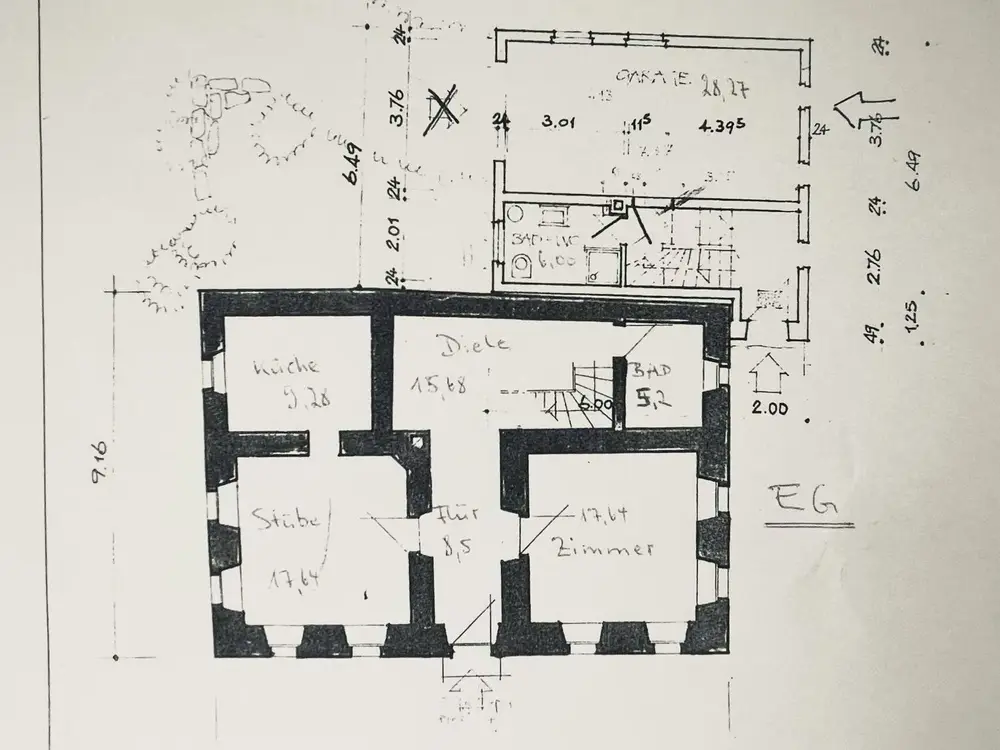 24
24
3.76
GARAGE 28,27
24
3.01
11⁵
4.39⁵
24
3.76
6.49
6.49
24
24
2.01
BAD-WC
6,00
2.76
24
49
1,25
2.00
Küche
9,28
Diele
15,68
6.00
BAD
5,2
9.16
EG
Stube
17,64
Flur
8,5
17,64
Zimmer